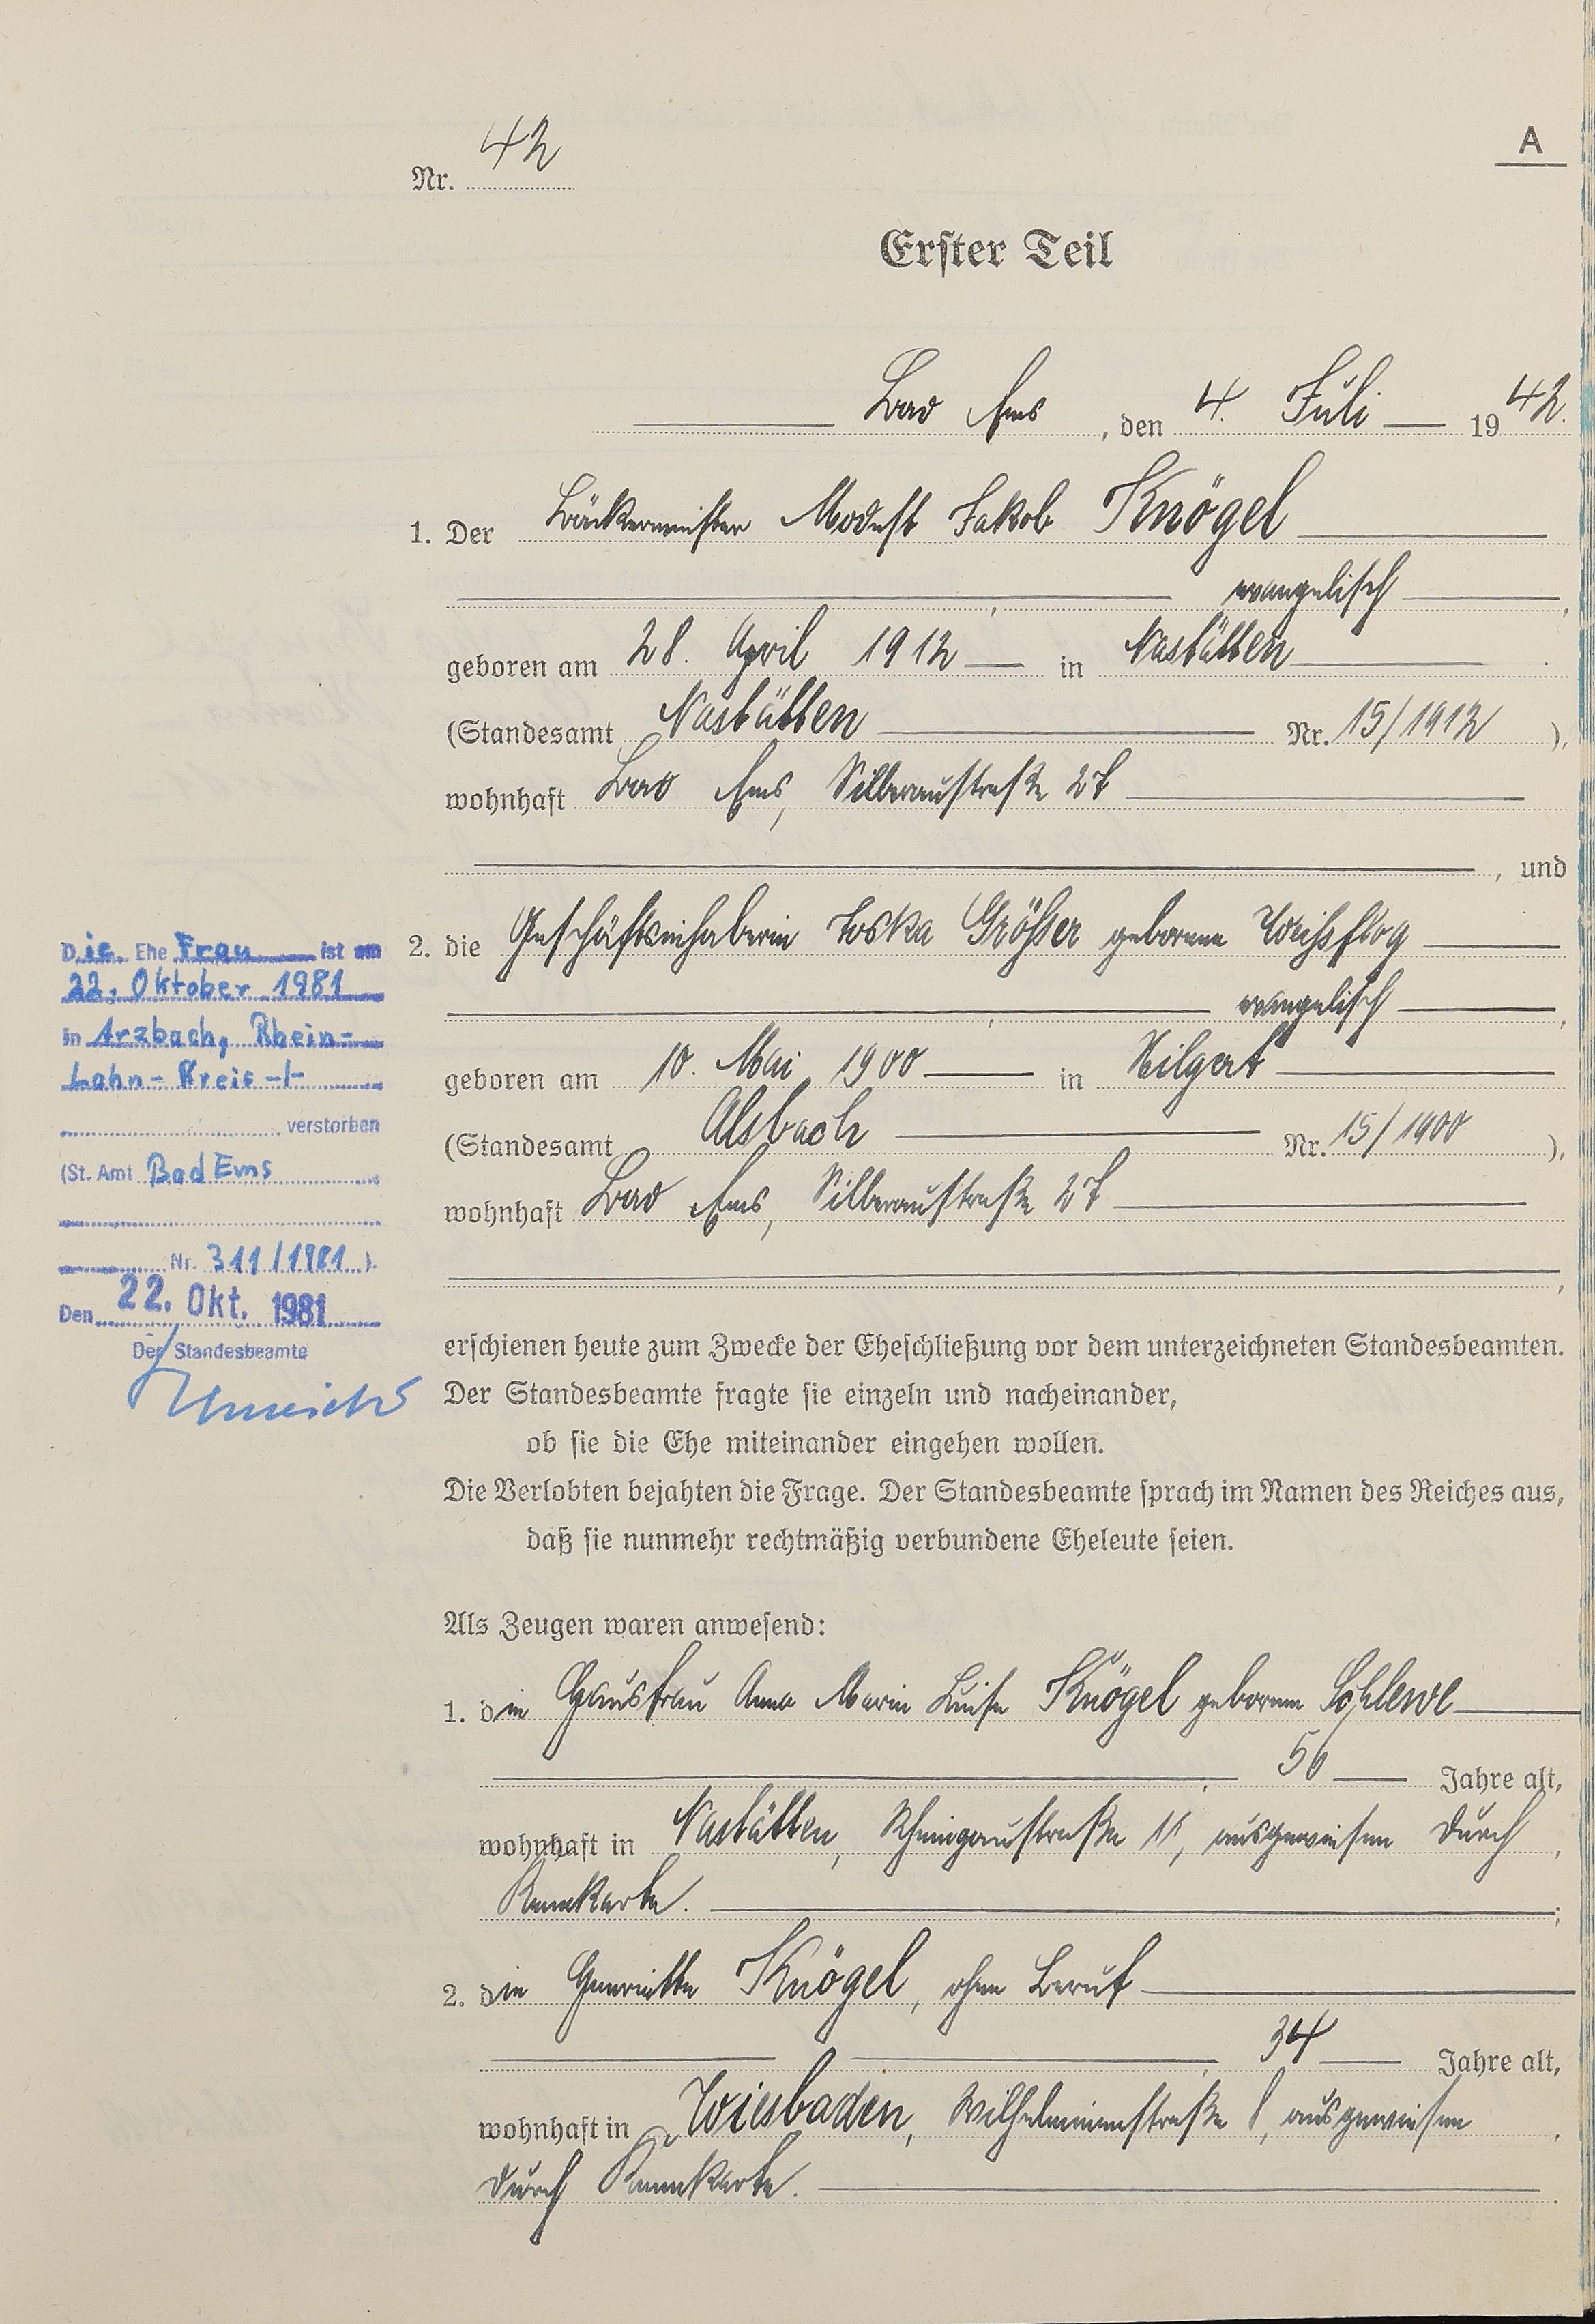 A
Nr. 42
Erster Teil
Bad Ems, den 4. Juli 1942.
1. Der Bäckermeister Modest Jakob Knögel
, evangelisch,
geboren am 28. April 1912 in Nastätten
(Standesamt Nastätten Nr. 15/1912),
wohnhaft Bad Ems, Silberaustraße 27
, und
2. die Geschäftsinhaberin Toska Größer geborene Weißflog
, evangelisch,
geboren am 10. Mai 1900 in Hilgert
(Standesamt Alsbach Nr. 15/1900),
wohnhaft Bad Ems, Silberaustraße 27
,
erschienen heute zum Zwecke der Eheschließung vor dem unterzeichneten Standesbeamten.
Der Standesbeamte fragte sie einzeln und nacheinander,
ob sie die Ehe miteinander eingehen wollen.
Die Verlobten bejahten die Frage. Der Standesbeamte sprach im Namen des Reiches aus,
daß sie nunmehr rechtmäßig verbundene Eheleute seien.
Als Zeugen waren anwesend:
1. die Hausfrau Anna Marie Luise Knögel geborene
, 56 Jahre alt,
wohnhaft in Nastätten, Rheingaustraße, ausgewiesen durch,
Kennkarte.;
2. die Henriette Knögel, ohne Beruf
, 34 Jahre alt,
wohnhaft in Wiesbaden, Wilhelminenstraße, ausgewiesen,
durch Kennkarte.
Die Ehe Frau ist am
22. Oktober 1981
in Arzbach, Rhein-
Lahn-Kreis -/-
verstorben
(St. Amt Bad Ems
Nr. 311/1981).
Den 22. Okt. 1981
Der Standesbeamte